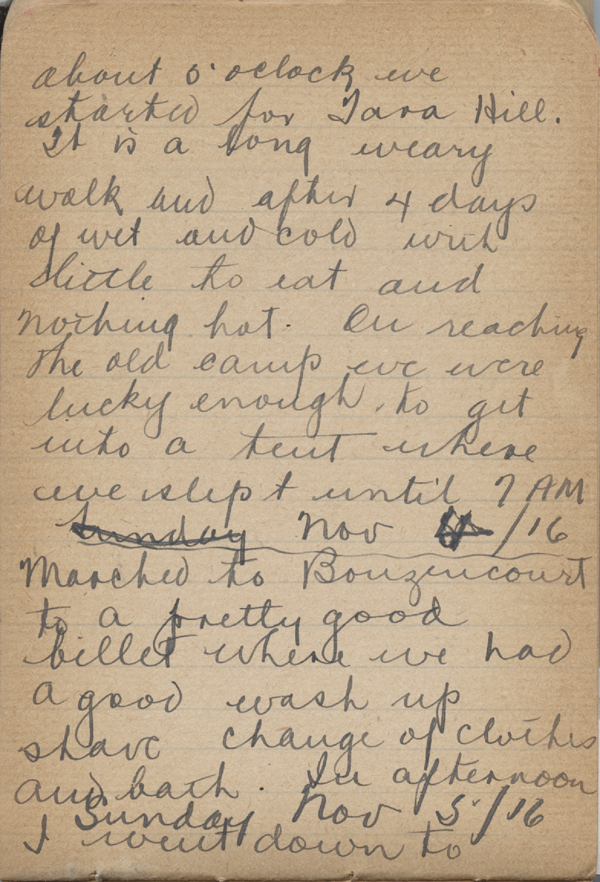 about 5 oclock we
started for Tara Hill.
It is a long weary
walk and after 4 days
of wet and cold with
little to eat and
nothing hot. On reaching
the old camp we were
lucky enough to get
into a tent where
we slept until 7 AM
Sunday Nov /16
Marched to Bouzencourt
to a pretty good
billet where we had
a good wash up
shave change of clothes
and bath. In afternoon
Sunday Nov 5/16
I went down to